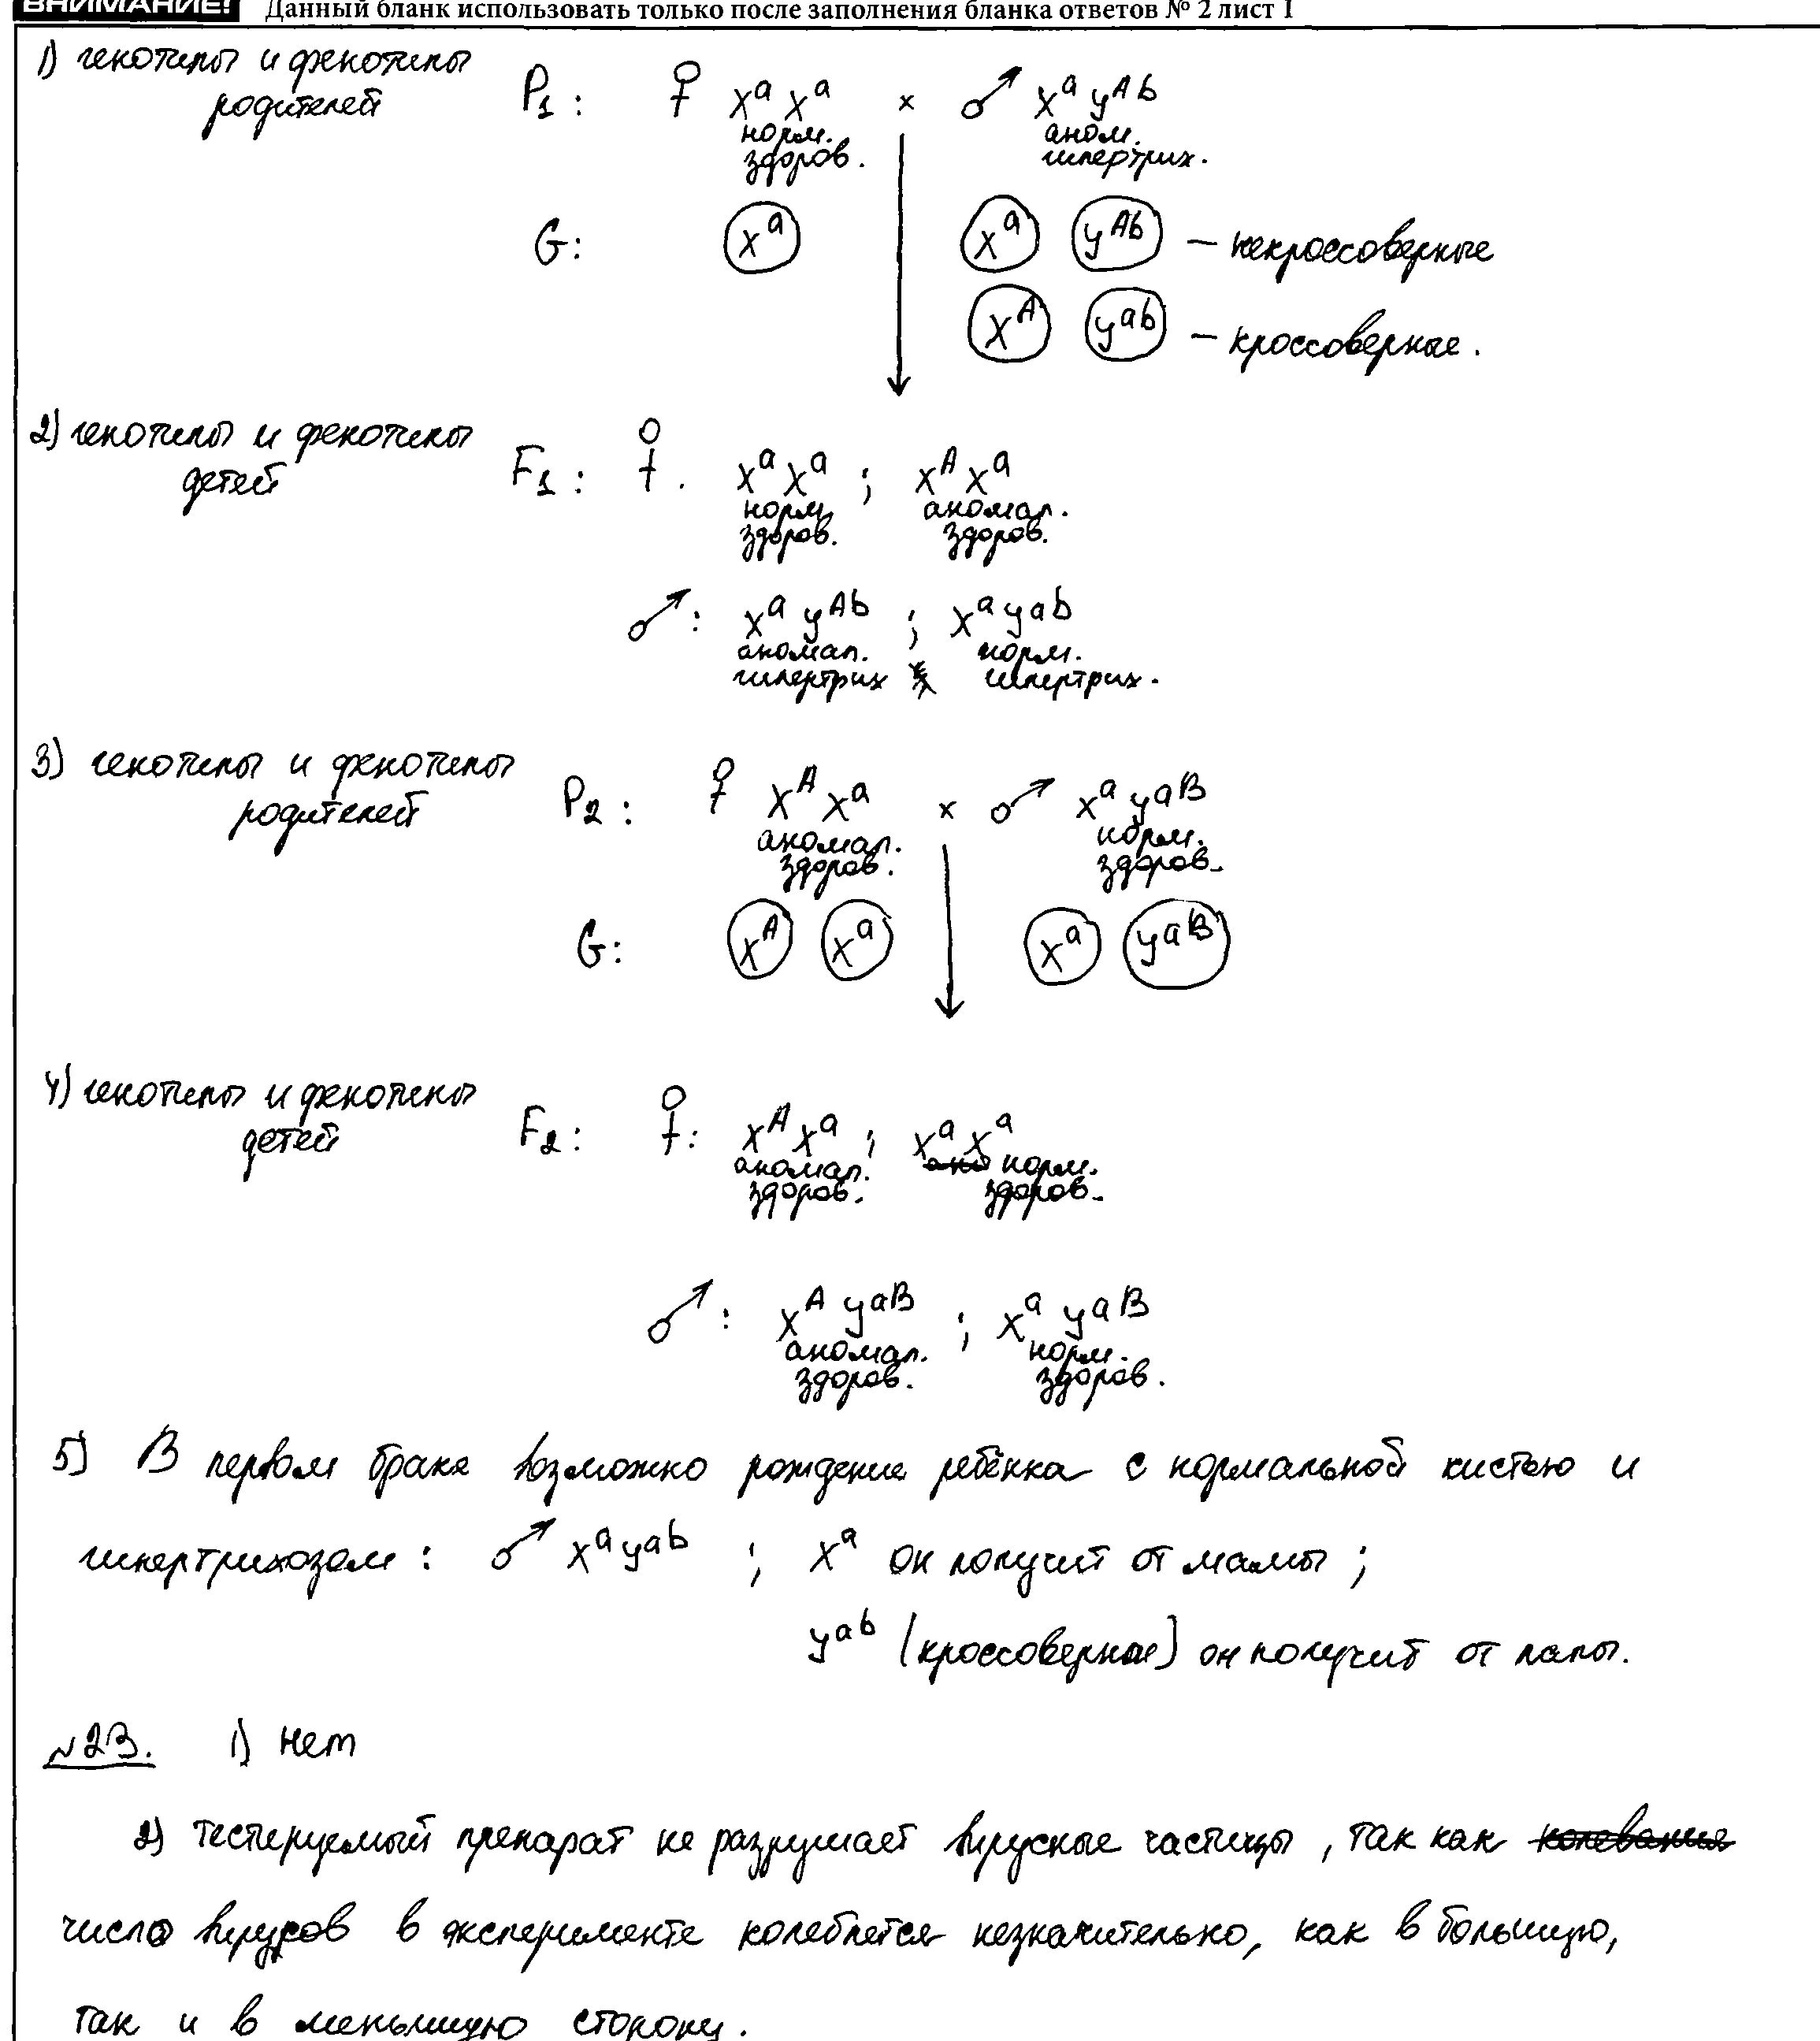 ВНИМАНИЕ! Данный бланк использовать только после заполнения бланка ответов № 2 лист 1
1) генотипы и фенотипы родителей P₁: ♀ Xᵃ Xᵃ × ♂ Xᵃ Yᴬᵇ
норм. здоров. аном. гипертрих.
G: Xᵃ Xᵃ Yᴬᵇ – некроссоверные
Xᴬ Yᵃᵇ – кроссоверные.
2) генотипы и фенотипы детей F₁: ♀. XᵃXᵃ ; XᴬXᵃ
норм. здоров. аномал. здоров.
♂: Xᵃ Yᴬᵇ ; Xᵃ Yᵃᵇ
аномал. гипертрих норм. гипертрих.
3) генотипы и фенотипы родителей P₂: ♀ Xᴬ Xᵃ × ♂ Xᵃ Yᵃᴮ
аномал. здоров. норм. здоров.
G: Xᴬ Xᵃ Xᵃ Yᵃᴮ
4) генотипы и фенотипы детей F₂: ♀: XᴬXᵃ ; XᵃXᵃ
аномал. здоров. норм. здоров.
♂: Xᴬ Yᵃᴮ ; Xᵃ Yᵃᴮ
аномал. здоров. норм. здоров.
5) В первом браке возможно рождение ребёнка с нормальной кистью и
гипертрихозом : ♂ XᵃYᵃᵇ ; Xᵃ он получит от мамы ;
Yᵃᵇ (кроссоверная) он получит от папы.
№23. 1) Нет
2) тестируемый препарат не разрушает вирусные частицы, так как
число вирусов в эксперименте колеблется незначительно, как в большую,
так и в меньшую сторону.